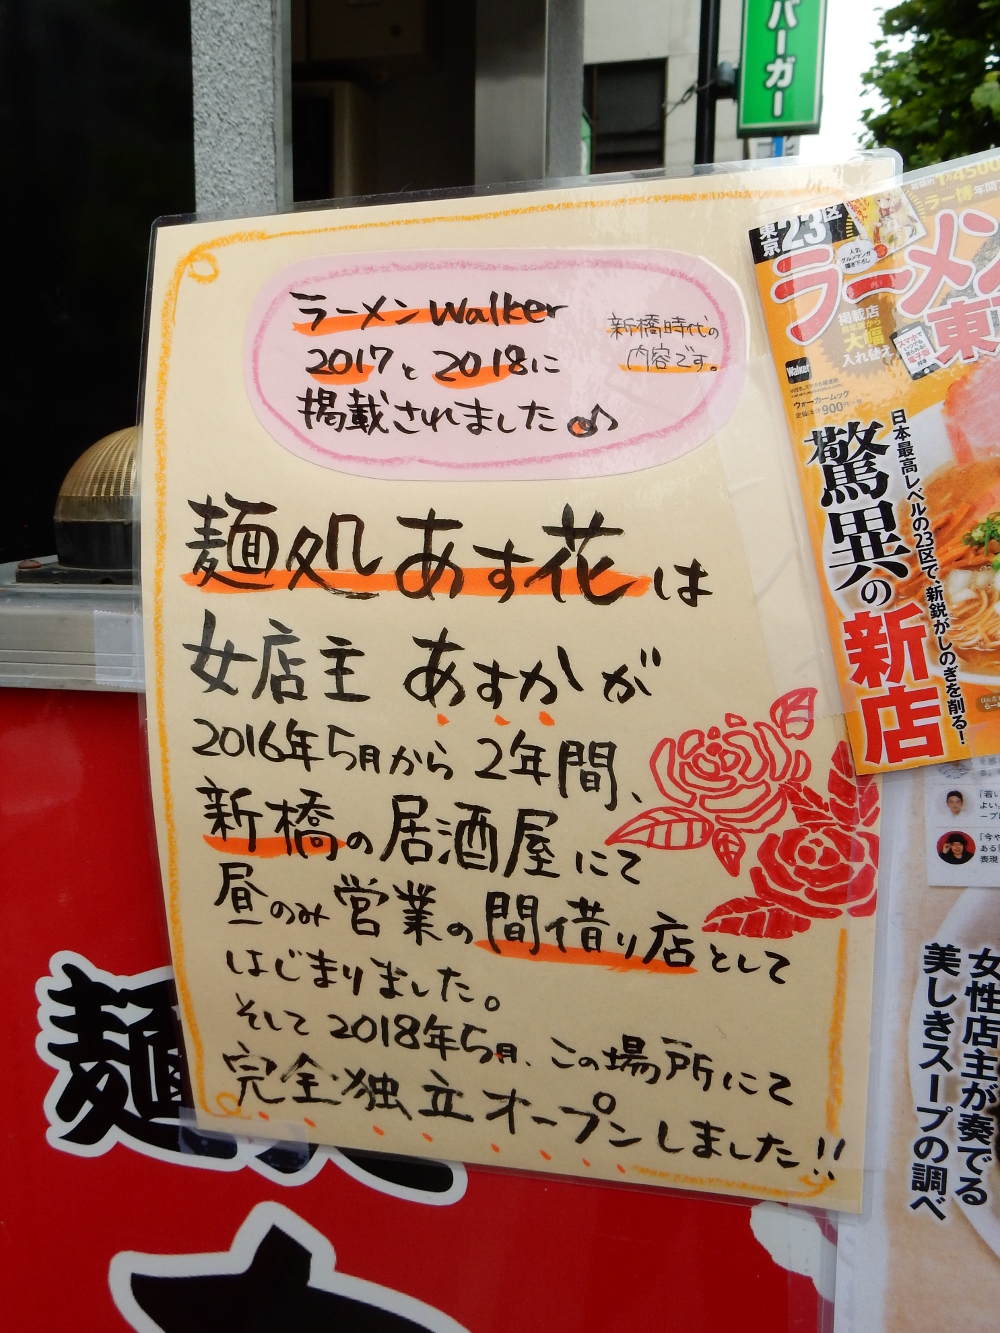 バーガー
ラーメンWalker
2017と2018に
掲載されました♪
新橋時代の
内容です。
麺処 あす花は
女店主 あすかが
2016年5月から 2年間、
新橋の居酒屋にて
昼のみ営業の間借り店として
はじまりました。
そして2018年5月、この場所にて
完全独立オープンしました!!
東京23区
ラーメン
東
掲載店
大幅
入れ替え
Walker
ウォーカームック
900円
日本最高レベルの23区で、新鋭がしのぎを削る!
驚異の
新店
女性店主が奏でる
美しきスープの調べ
麺